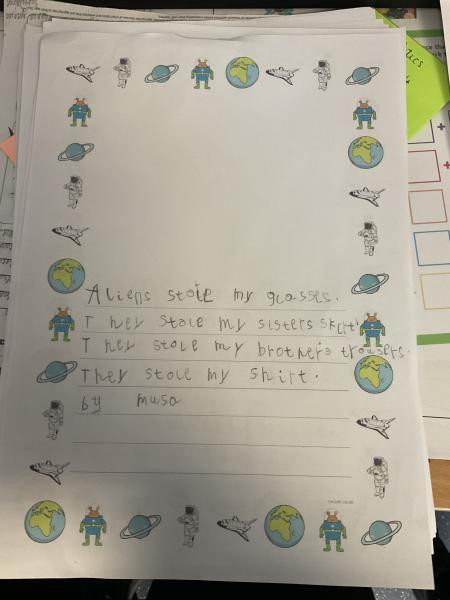 Aliens stole my glasses.
They stole my sisters skirt
They stole my brother's trousers.
They stole my shirt.
by musa